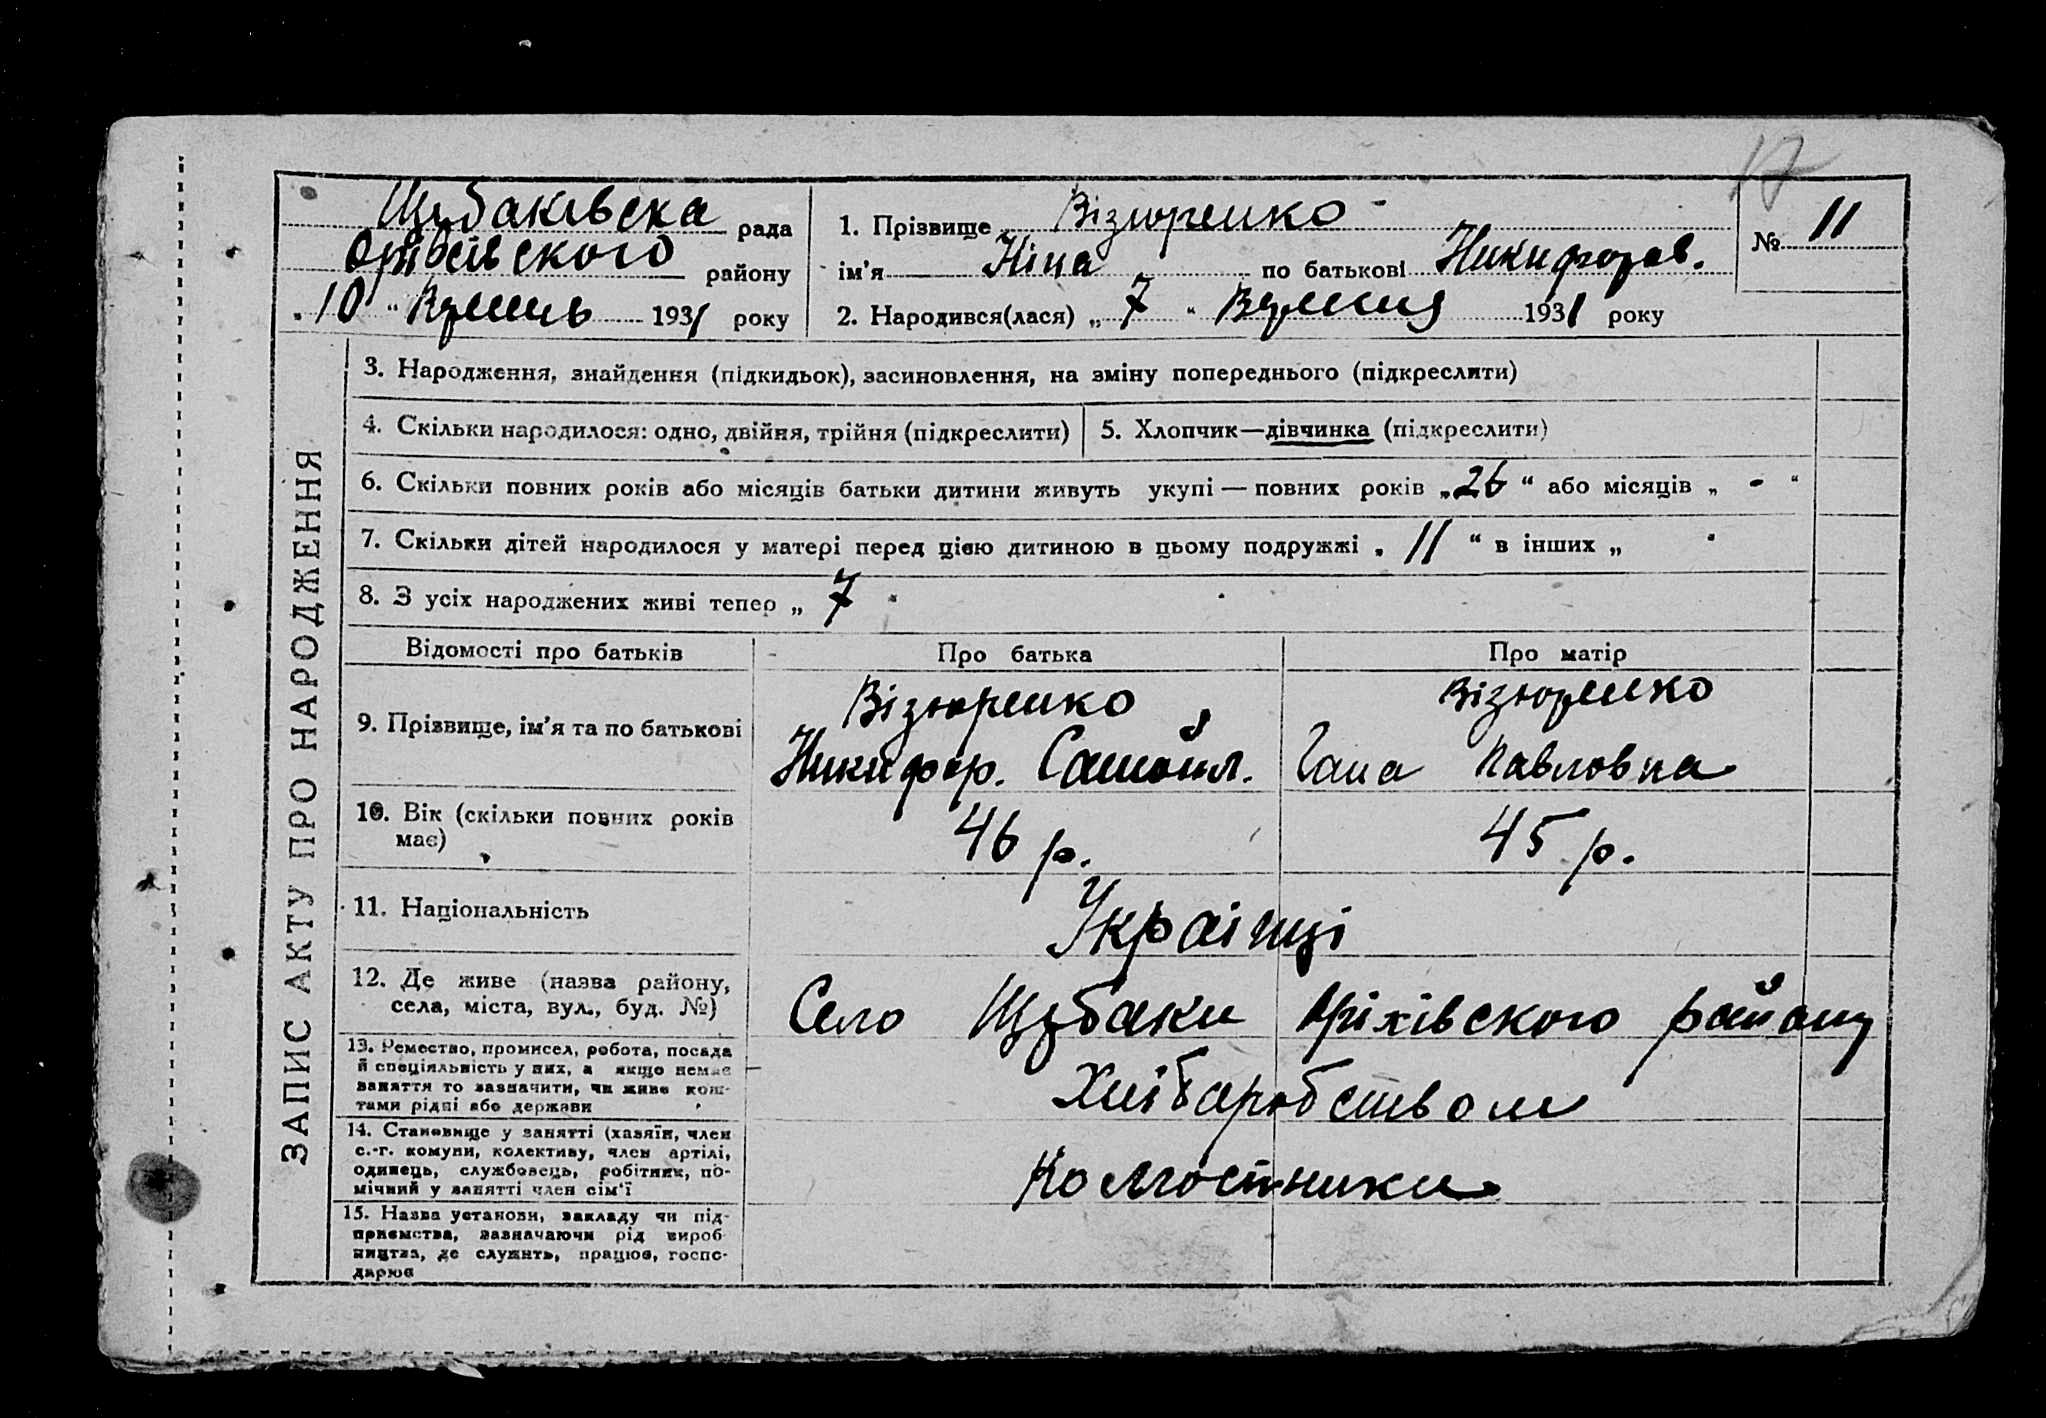 17
Щербаківська рада
Оріхівського району
„10“ Вресень 1931 року
1. Прізвище Візиренко
ім'я Ніна по батькові Никифоров.
2. Народився(лася) „7“ Вересня 1931 року
№ 11
ЗАПИС АКТУ ПРО НАРОДЖЕННЯ
3. Народження, знайдення (підкидьок), засиновлення, на зміну попереднього (підкреслити)
4. Скільки народилося: одно, двійня, трійня (підкреслити)
5. Хлопчик—дівчинка (підкреслити)
6. Скільки повних років або місяців батьки дитини живуть укупі — повних років „26“ або місяців „-“
7. Скільки дітей народилося у матері перед цією дитиною в цьому подружжі „11“ в інших „ “
8. З усіх народжених живі тепер „7“
Відомості про батьків Про батька Про матір
9. Прізвище, ім'я та по батькові
Візюренко
Никифор. Самойл.
Візюренко
Гана Павловна
10. Вік (скільки повних років має)
46 р. 45 р.
11. Національність
Українці
12. Де живе (назва району,
села, міста, вул., буд. №)
Село Щрбаки Оріхівського району
13. Ремество, промисел, робота, посада
й спеціяльність у них, а якщо немає
заняття то зазначити, чи живе кош-
тами рідні або держави
Хлібаробством
14. Становище у занятті (хазяїн, член
с.-г. комуни, колективу, член артілі,
одинець, службовець, робітник, по-
мічний у занятті член сім'ї
Колгостники
15. Назва установи, закладу чи під-
приємства, зазначаючи рід вироб-
ництва, де служить, працює, госпо-
дарює